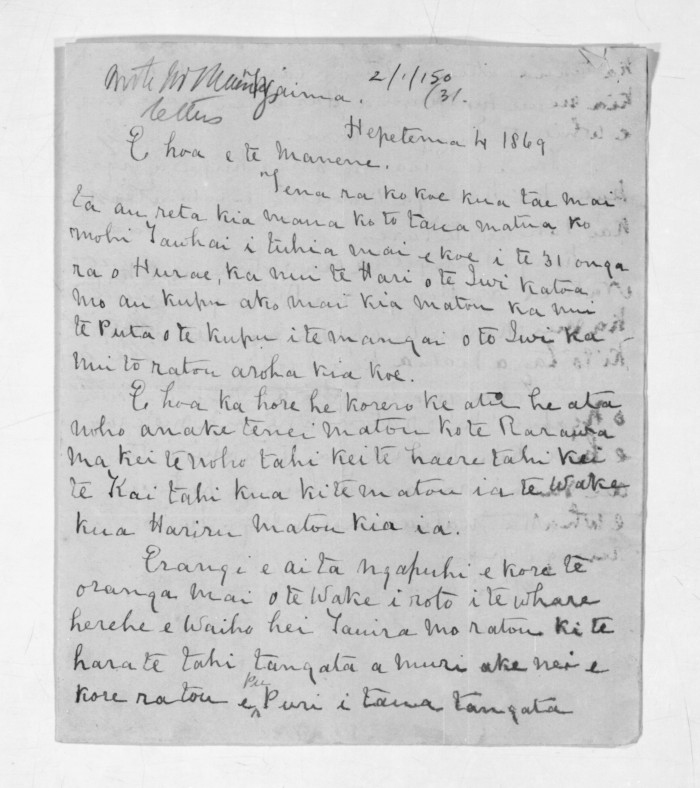 wrote Mr Maning
letters
2/1/150
/31.
Waima.
Hepetema 4 1869
E hoa e te Manene.
Tena ra ko koe kua tae mai
ta au reta kia maua ko to taua matua ko
Mohi Tawhai i tuhia mai e koe i te 31 onga
ra o Hurae, ka nui te Hari o te Iwi katoa
mo au kupu ako mai kia matou ka nui
te Puta o te kupu i te mangai o to Iwi ka
nui to ratou aroha kia koe.
E hoa ka hore he korero ke atu he ata
noho anake tenei matou ko te Rarawa
ma kei te noho tahi kei te haere tahi kei
te Kai tahi kua kite matou ia te Wake
kua Hariru matou kia ia.
Erangi e ai ta ngapuhi e kore te
oranga mai o te Wake i roto i te whare
herehe e Waiho hei Tauira mo ratou ki te
hara te tahi tangata a muri ake nei e
kore ratou e pu Puri i taua tangata